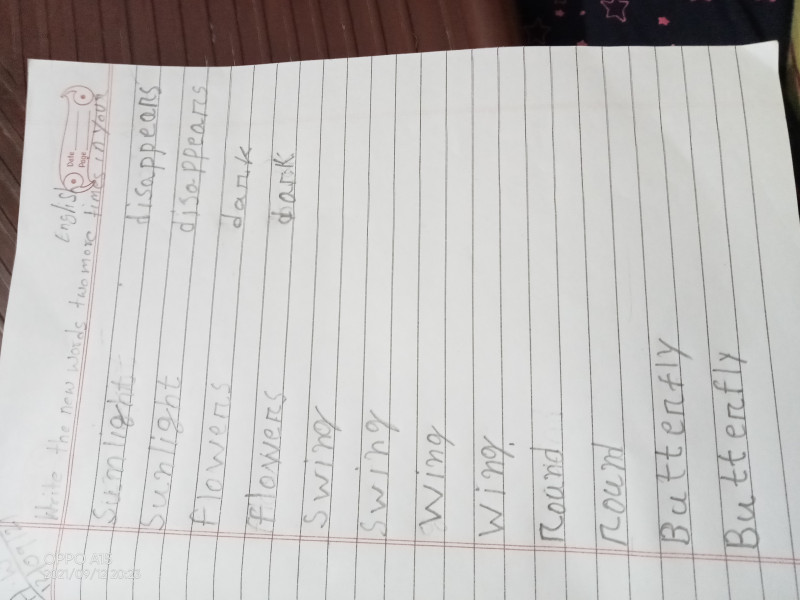 English
Date
Page
Write the new words two more times in your
Sunlight disappears
Sunlight disappears
Flowers dark
Flowers dark
Swing
Swing
Wing
Wing
Round
Round
Butterfly
Butterfly
OPPO A15
2021/09/12 20:23